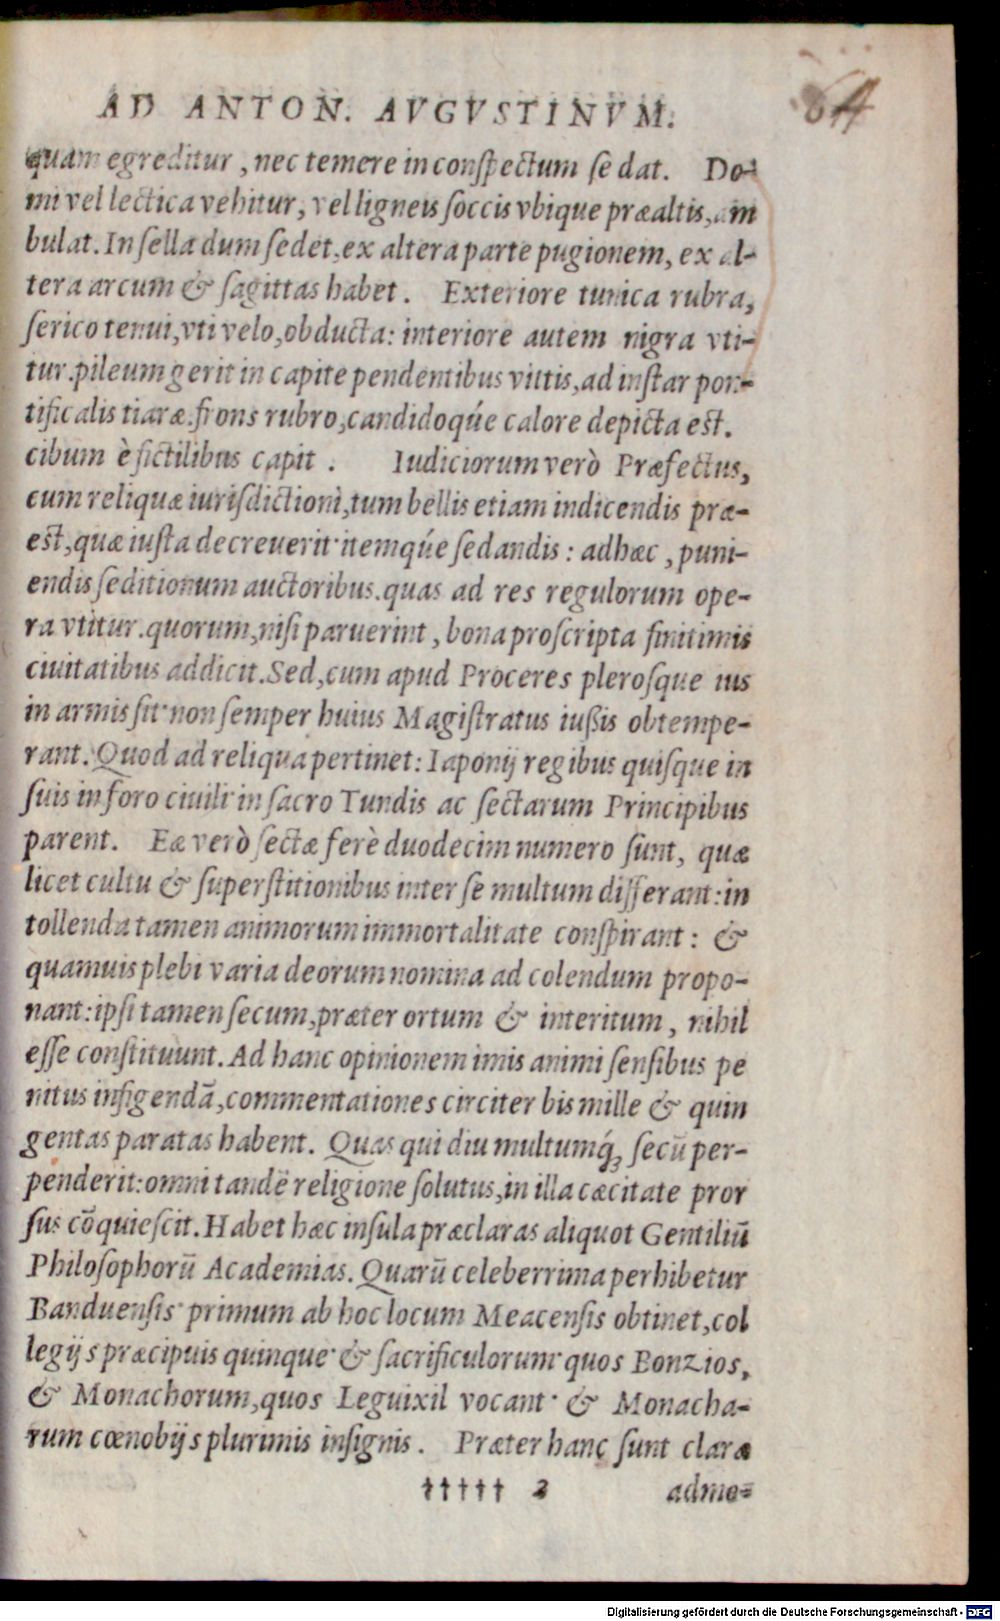 AD ANTON. AVGVSTINVM.
64
quam egreditur, nec temere in conſpectum ſe dat. Do-
mi vel lectica vehitur, vel ligneis ſoccis vbique præaltis, am
bulat. In ſella dum ſedet, ex altera parte pugionem, ex al-
tera arcum & ſagittas habet. Exteriore tunica rubra,
ſerico tenui, vti velo, obducta: interiore autem nigra vti-
tur. pileum gerit in capite pendentibus vittis, ad inſtar pon-
tificalis tiaræ. frons rubro, candidoqúe calore depicta eſt.
cibum è fictilibus capit. Iudiciorum verò Præfectus,
cum reliquæ iuriſdictioni, tum bellis etiam indicendis præ-
eſt, quæ iuſta decreuerit· itemqúe ſedandis: adhæc, puni-
endis ſeditionum auctoribus. quas ad res regulorum ope-
ra vtitur. quorum, niſi paruerint, bona proſcripta finitimis
ciuitatibus addicit. Sed, cum apud Proceres pleroſque ius
in armis ſit· non ſemper huius Magiſtratus iußis obtempe-
rant. Quod ad reliqua pertinet: Iaponij regibus quiſque in
ſuis in foro ciuili· in ſacro Tundis ac ſectarum Principibus
parent. Eæ verò ſectæ ferè duodecim numero ſunt, quæ
licet cultu & ſuperſtitionibus inter ſe multum differant: in
tollenda tamen animorum immortalitate conſpirant: &
quamuis plebi varia deorum nomina ad colendum propo-
nant: ipſi tamen ſecum, præter ortum & interitum, nihil
eſſe conſtituunt. Ad hanc opinionem imis animi ſenſibus pe
nitus infigendã, commentationes circiter bis mille & quin
gentas paratas habent. Quas qui diu multumq́ꝫ ſecũ per-
penderit: omni tandẽ religione ſolutus, in illa cæcitate pror
ſus cõquieſcit. Habet hæc inſula præclaras aliquot Gentiliũ
Philoſophorũ Academias. Quarũ celeberrima perhibetur
Banduenſis· primum ab hoc locum Meacenſis obtinet, col
legijs præcipuis quinque· & ſacrificulorum· quos Bonzios,
& Monachorum, quos Leguixil vocant· & Monacha-
rum cœnobijs plurimis inſignis. Præter hanc ſunt claræ
††††† 2 adme-
Digitalisierung gefördert durch die Deutsche Forschungsgemeinschaft - DFG